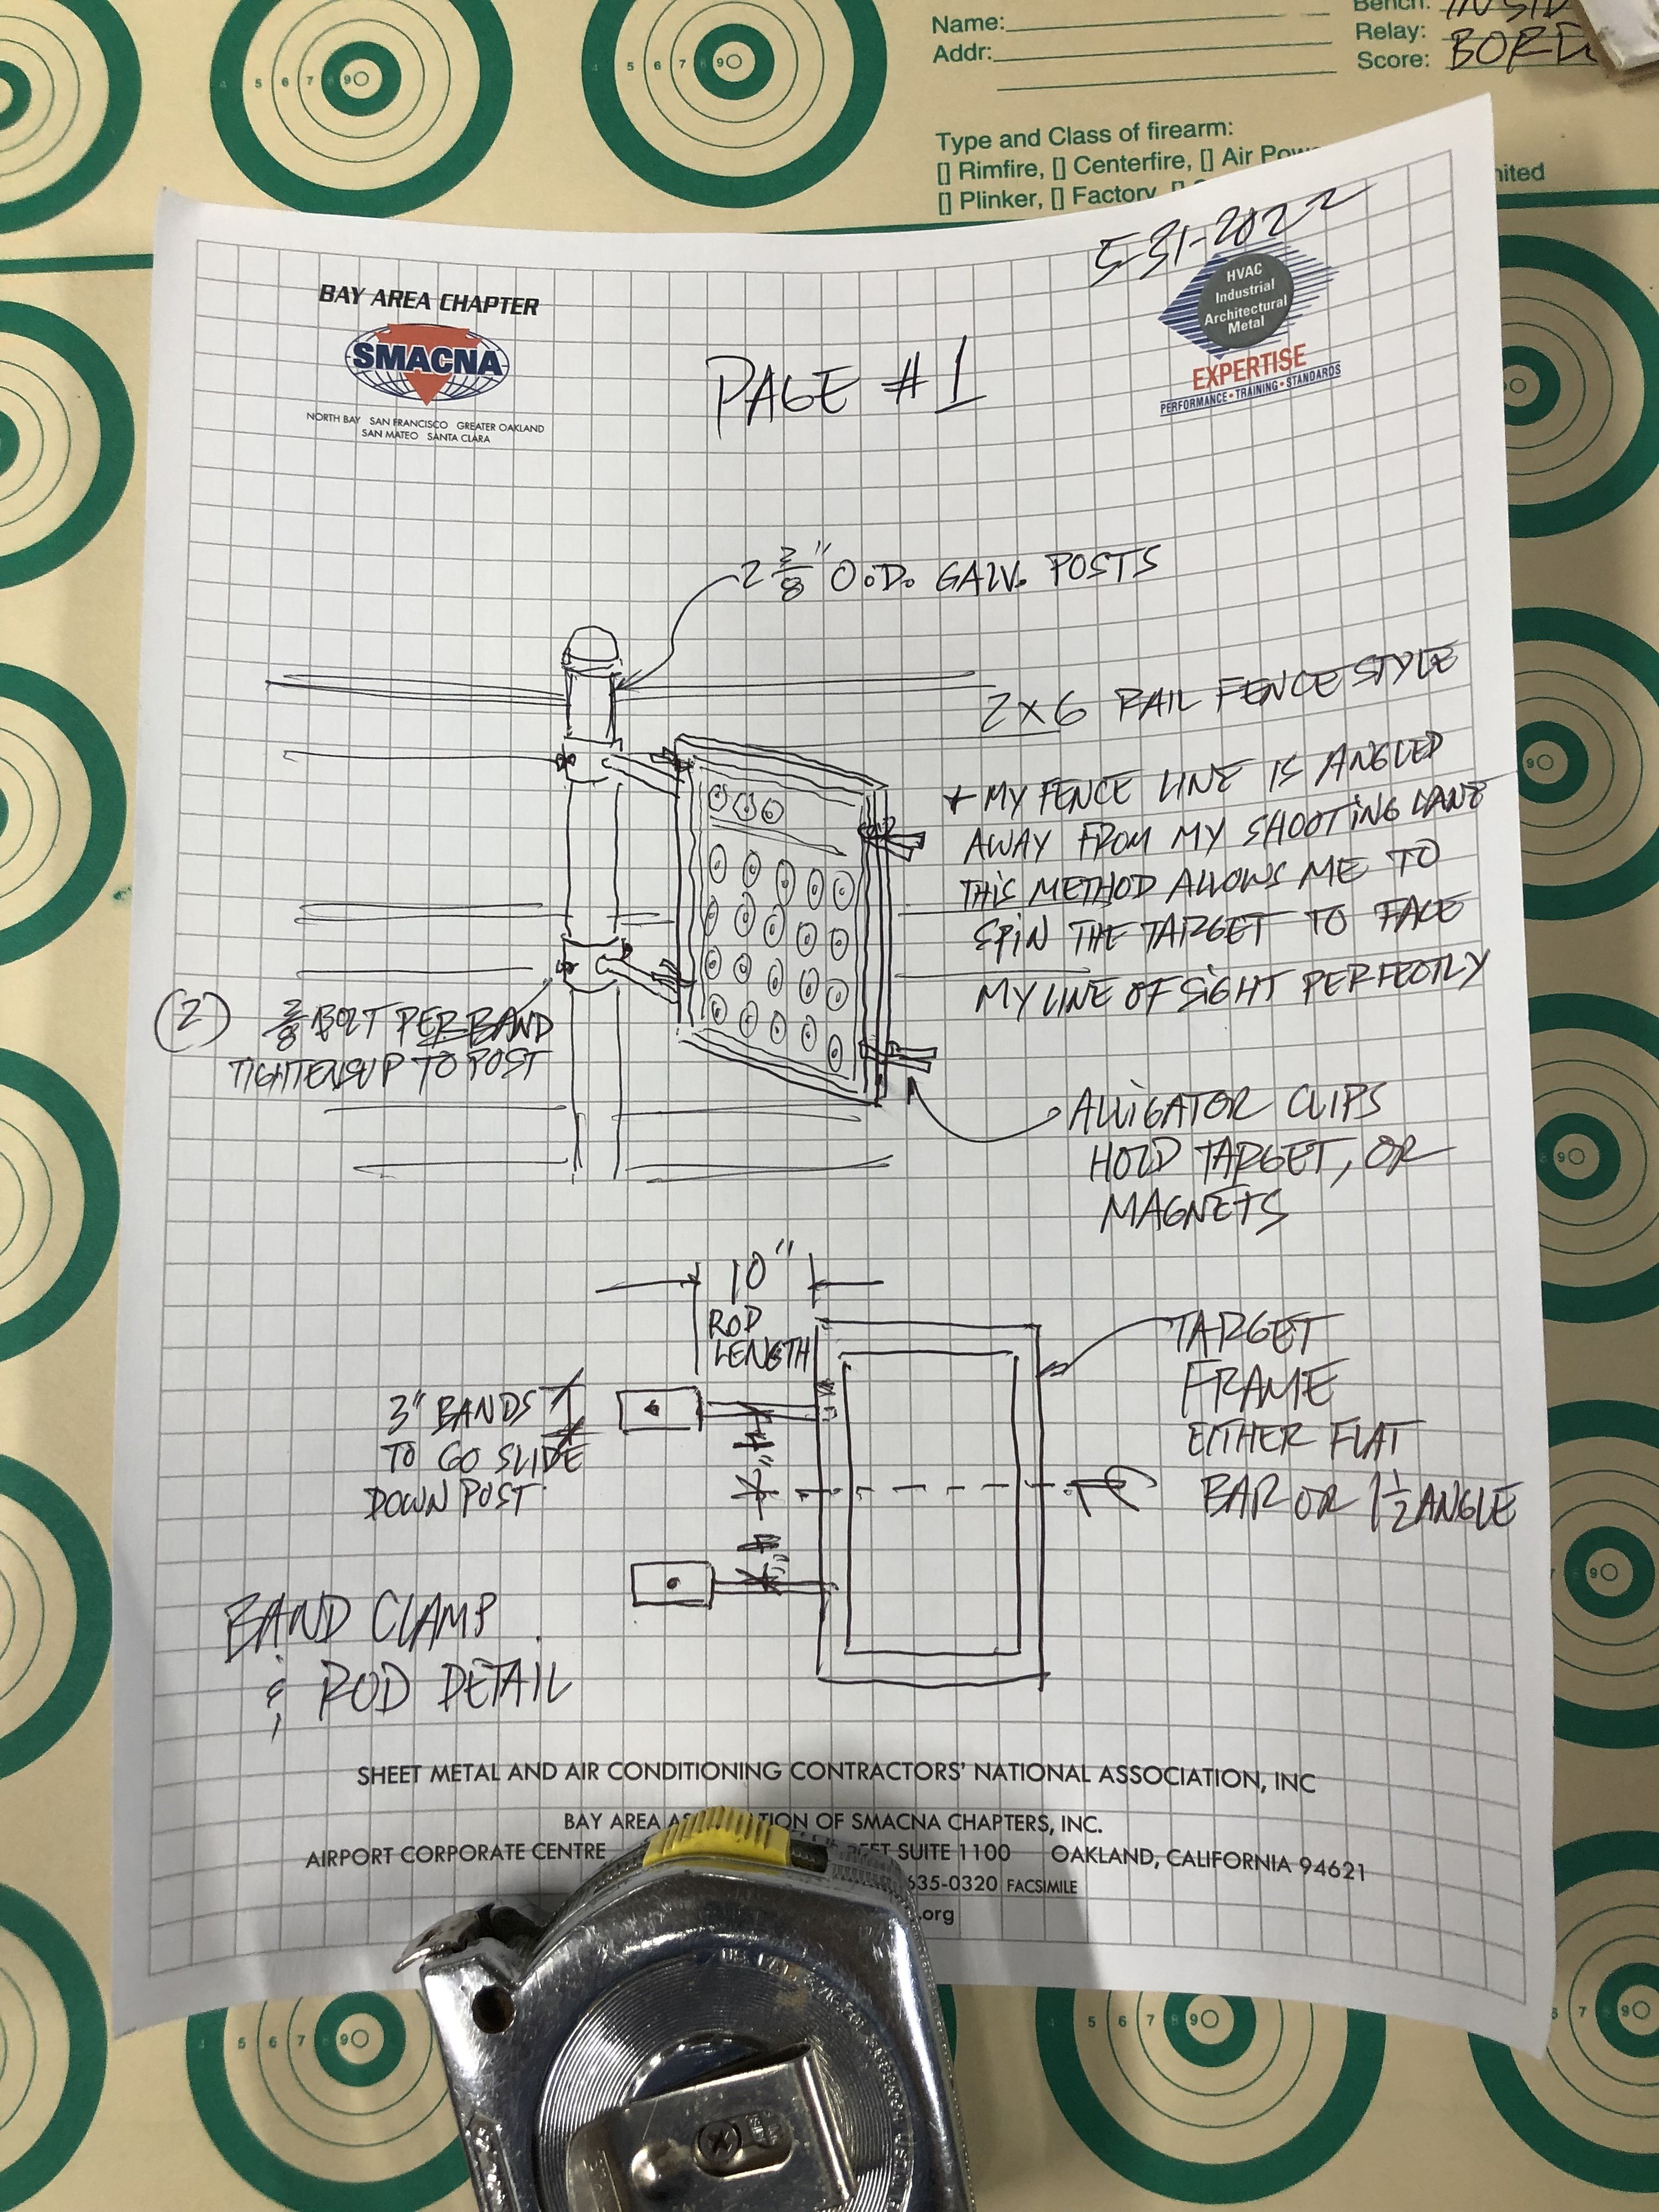 Name:
Addr:
Bench:
Relay:
Score: BORD
Type and Class of firearm:
[] Rimfire, [] Centerfire, [] Air
[] Plinker, [] Factory,
5-31-2022
BAY AREA CHAPTER
SMACNA
NORTH BAY SAN FRANCISCO GREATER OAKLAND
SAN MATEO SANTA CLARA
HVAC
Industrial
Architectural
Metal
EXPERTISE
PERFORMANCE • TRAINING • STANDARDS
PAGE #1
2 3/8" O.D. GALV. POSTS
2x6 RAIL FENCE STYLE
* MY FENCE LINE IS ANGLED
AWAY FROM MY SHOOTING LANE
THIS METHOD ALLOWS ME TO
SPIN THE TARGET TO FACE
MY LINE OF SIGHT PERFECTLY
(2) 3/8 BOLT PER BAND
TIGHTENS UP TO POST
ALLIGATOR CLIPS
HOLD TARGET, OR
MAGNETS
10"
ROD
LENGTH
3" BANDS
TO GO SLIDE
DOWN POST
TARGET
FRAME
EITHER FLAT
BAR OR 1 1/2 ANGLE
BAND CLAMP
& ROD DETAIL
SHEET METAL AND AIR CONDITIONING CONTRACTORS' NATIONAL ASSOCIATION, INC
BAY AREA OF SMACNA CHAPTERS, INC.
AIRPORT CORPORATE CENTRE SUITE 1100 OAKLAND, CALIFORNIA 94621
635-0320 FACSIMILE
.org